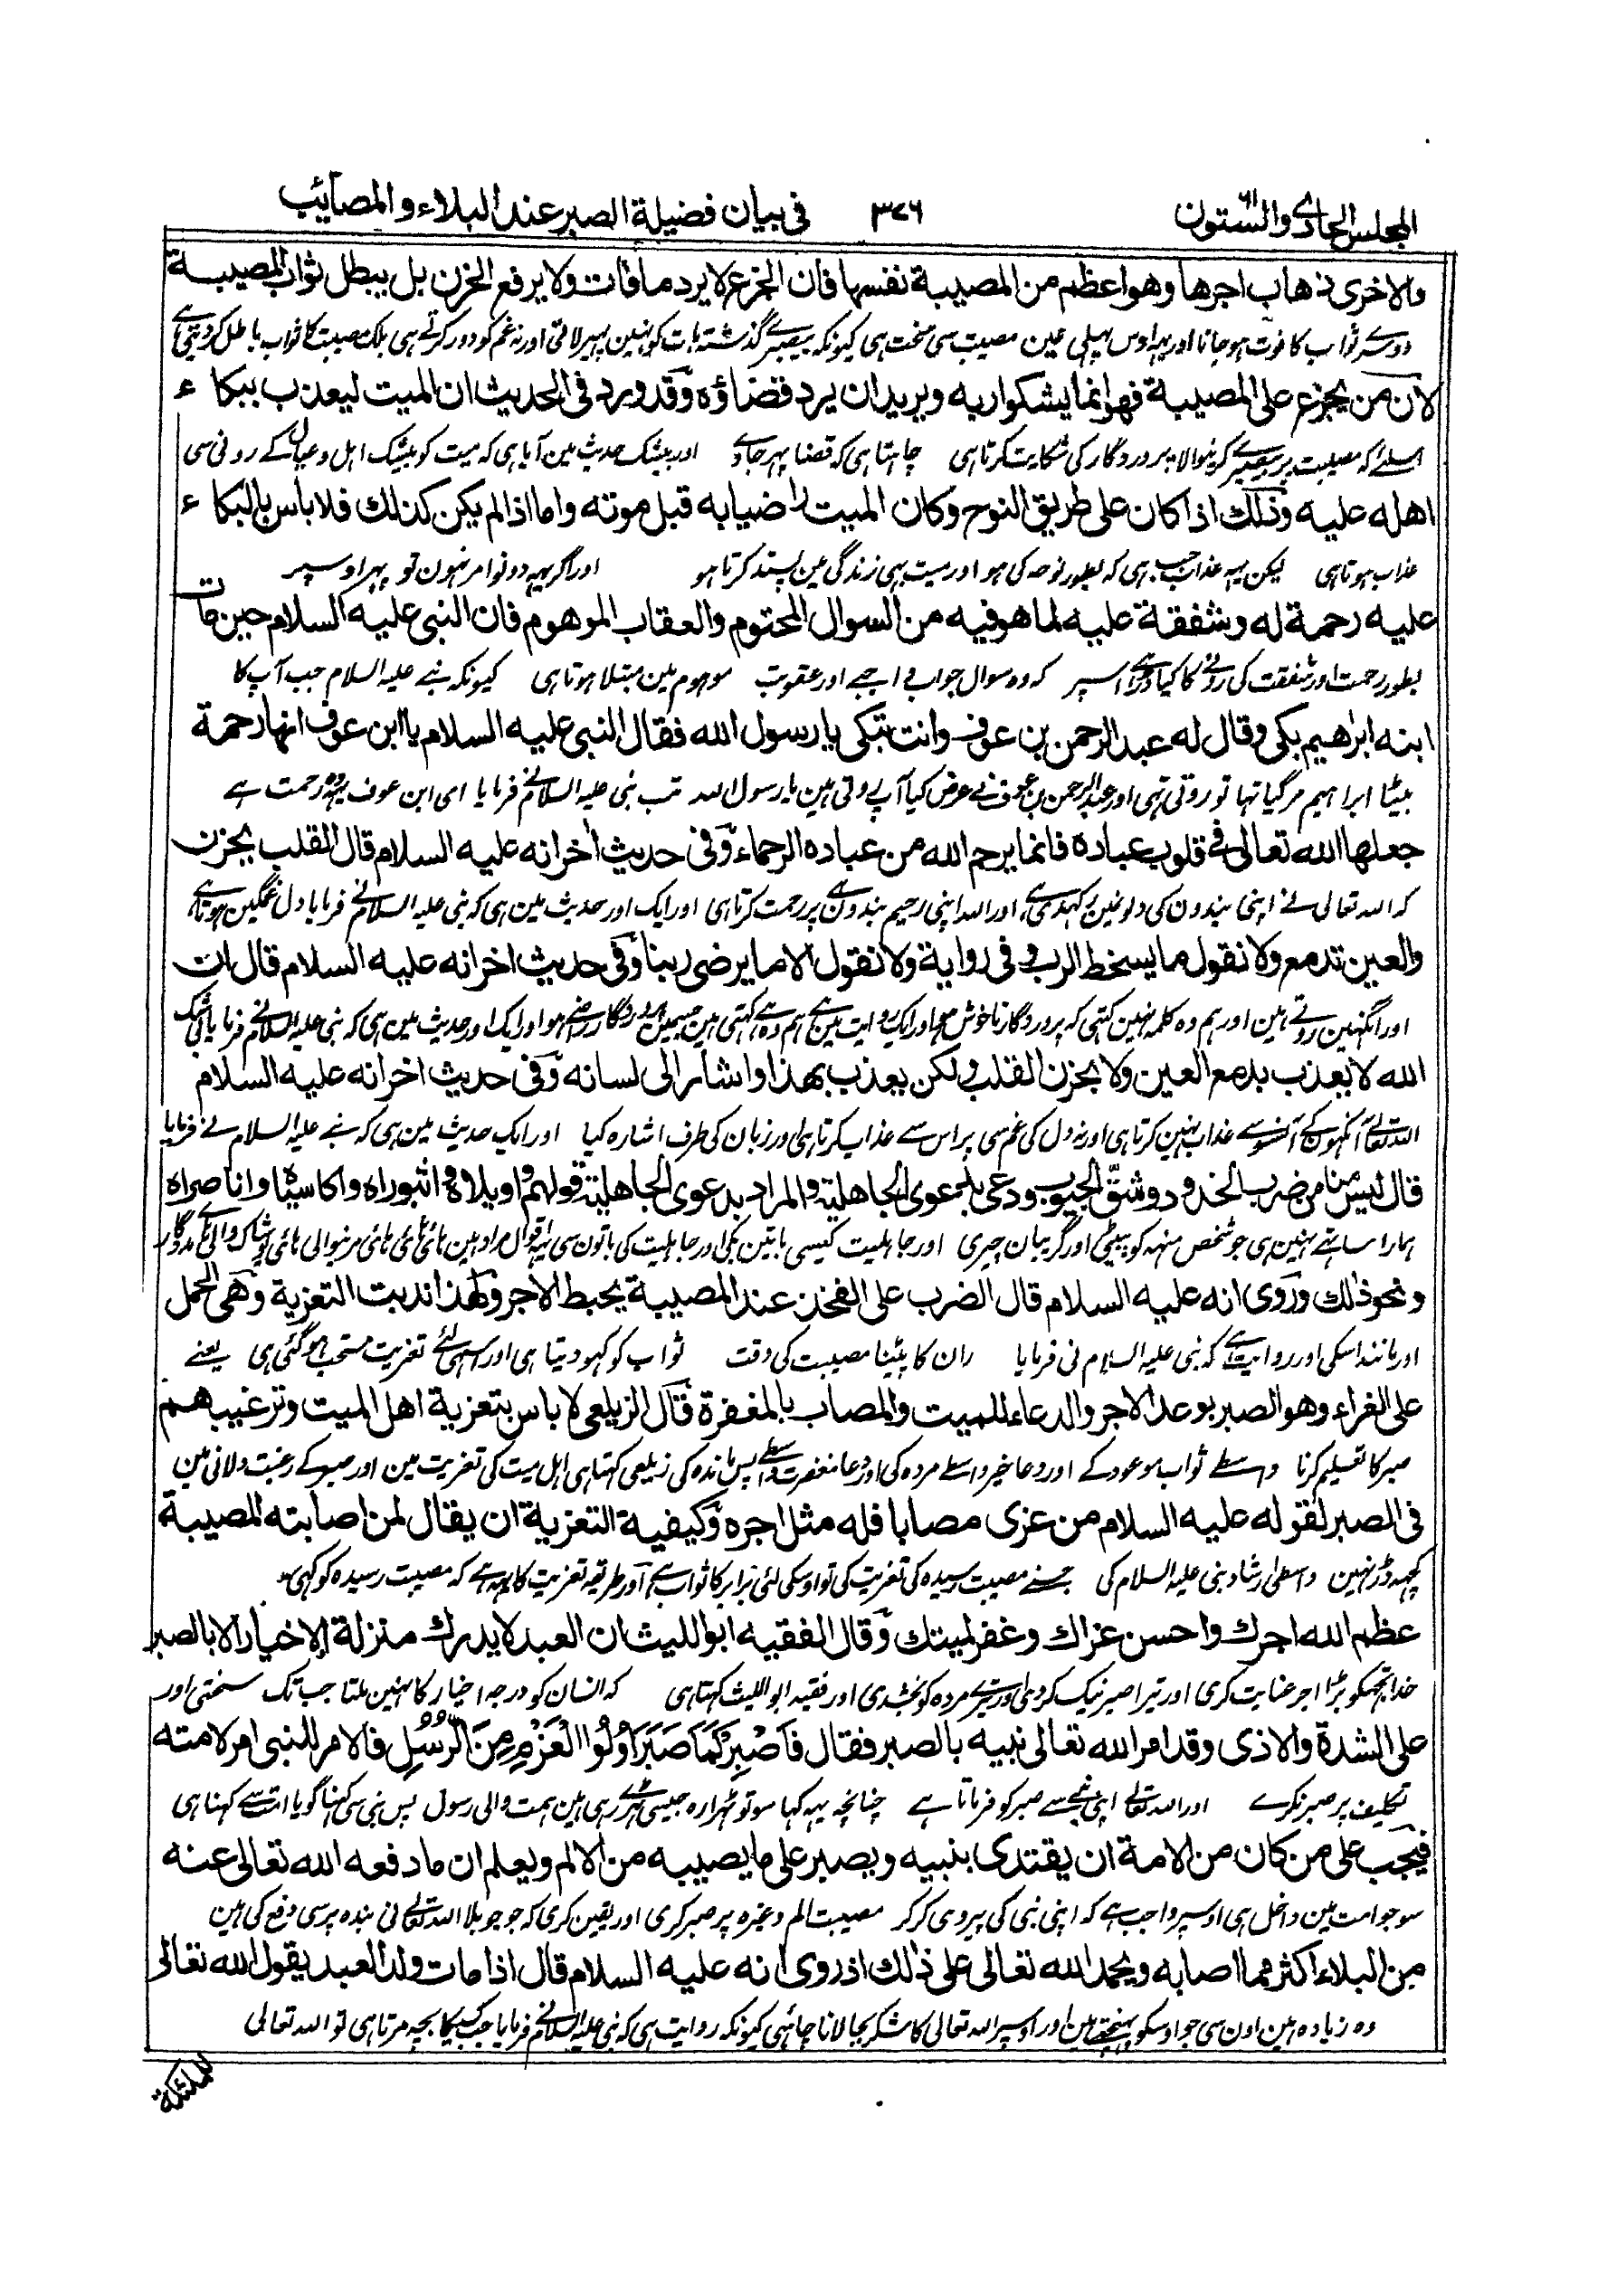 المجلس الحادي والستون ٣٧٦ في بيان فضيلة الصبر عند البلاء والمصائب
والاخرى ذهاب اجرها وهو اعظم من المصيبة نفسها فان الجزع لا يرد ما فات ولا يرفع الحزن بل يبطل ثواب المصيبة
دوسرے ثواب کا فوت ہو جانا اور یہہ اوس پہلی عین مصیبت سی سخت ہی کیونکہ بیصبرے گذشتہ بات کو نہین پہیر لاتی اور نہ غم کو دور کرتے ہی بلکہ مصیبت کا ثواب باطل کر دیتی ہے
لان من يجزع على المصيبة فهو انما يشكو اربه ويريد ان يرد قضاؤه وقد ورد في الحديث ان الميت ليعذب ببكاء
اسلئے کہ مصیبت پر بیصبرے کرنیوالا پروردگار کی شکایت کرتا ہی چاہتا ہی کہ قضا پہر جاوے اور بیشک حدیث مین آیا ہی کہ میت کو بیشک اہل وعیال کے رونی سی
اهله عليه وذلك اذا كان على طريق النوح وكان الميت راضيا به قبل موته واما اذا لم يكن كذلك فلا باس بالبكاء
عذاب ہوتا ہی لیکن یہہ عذاب جب ہی کہ بطور نوحہ کی ہو اور میت بہی زندگی مین پسند کرتا ہو اور اگر یہہ دونو امر نہون تو پہر اوسپر
عليه رحمة له وشفقة عليه لما هو فيه من السوال المحتوم والعقاب الموهوم فان النبي عليه السلام حين مات
بطور رحمت اور شفقت کی رونے کا کیا ڈر ہے اسپر کہ وہ سوال جواب واجبے اور عقوبت موہوم مین مبتلا ہوتا ہی کیونکہ نبے علیہ السلام جب آپ کا
ابنه ابراهيم بكى وقال له عبد الرحمن بن عوف وانت تبكي يا رسول الله فقال النبي عليه السلام يا ابن عوف انها رحمة
بیٹا ابراہیم مر گیا تہا تو روتی تہی اور عبد الرحمن بن عوف نے عرض کیا آپ روتی ہین یا رسول اللہ تب نبی علیہ السلام نے فرمایا ای ابن عوف یہہ وہ رحمت ہے
جعلها الله تعالى في قلوب عباده فانما يرحم الله من عباده الرحماء وفي حديث اخر انه عليه السلام قال القلب يحزن
کہ اللہ تعالی نے اپنی بندون کی دلونمین رکہدی ہے، اور اللہ اپنی رحیم بندون ہے پر رحمت کرتا ہی اور ایک اور حدیث مین ہی کہ نبی علیہ السلام نے فرمایا دل غمگین ہوتا ہے،
والعين تدمع ولا نقول ما يسخط الرب وفي رواية ولا نقول الا ما يرضى ربنا وفي حديث اخر انه عليه السلام قال ان
اور انکہین روتے ہین اور ہم وہ کلمہ نہین کہتی کہ پروردگار ناخوش ہو اور ایک روایت مین ہے ہم وہ ہے کہتی ہین جسمین پروردگار راضے ہو اور ایک اور حدیث مین ہی کہ نبی علیہ السلام نے فرمایا بیشک
الله لا يعذب بدمع العين ولا بحزن القلب ولكن يعذب بهذا واشار الى لسانه وفي حديث اخر انه عليه السلام
اللہ تعالے آنکہون کے آنسو سے عذاب نہین کرتا ہی اور نہ دل کی غم سی پر اس سے عذاب کرتا ہی اور زبان کی طرف اشارہ کیا اور ایک حدیث مین ہی کہ نبے علیہ السلام نے فرمایا
قال ليس منا من ضرب الخدود وشق الجيوب ودعى بدعوى الجاهلية والمراد بدعوى الجاهلية قولهم واويلاه واثبوراه واكاسياه واناصراه
ہمارا ساتہے نہین ہی جو شخص منہہ کو پیٹی اور گریبان چیری اور جاہلیت کیسی باتین بکی اور جاہلیت کی باتون سی یہہ اقوال مراد ہین ہائے ہائے ہائی مرنیوالی ہائی پوشاک والے ہائے مددگار
ونحو ذلك وروى انه عليه السلام قال الضرب على الفخذ عند المصيبة يحبط الاجر ولهذا ندبت التعزية وهي الحمل
اور مانند اسکی اور روایت ہے کہ نبی علیہ السلام نی فرمایا ران کا پیٹنا مصیبت کی وقت ثواب کو کہو دیتا ہی اور اسہی لئے تعزیت مستحب ہو گئی ہی یعنے
على العزاء وهو الصبر بوعد الاجر والدعاء للميت والمصاب بالمغفرة قال الزيلعي لا باس بتعزية اهل الميت وترغيبهم
صبر کا تعلیم کرنا واسطے ثواب موعود کے اور دعا خیر واسطے مردہ کی اور دعا مغفرت واسطے پس ماندہ کی زیلعی کہتا ہی اہل میت کی تعزیت مین اور صبر کے رغبت دلانی مین
في الصبر لقوله عليه السلام من عزى مصابا فله مثل اجره وكيفية التعزية ان يقال لمن اصابته المصيبة
کچہہ ڈر نہین واسطی ارشاد نبی علیہ السلام کی جسنے مصیبت رسیدہ کی تعزیت کی تو اوسکی لئی برابر کا ثواب ہے، اور طریقہ تعزیت کا یہہ ہے کہ مصیبت رسیدہ کو کہی
عظم الله اجرك واحسن عزاك وغفر لميتك وقال الفقيه ابو الليث ان العبد لا يدرك منزلة الاخيار الا بالصبر
خدا تجہکو بڑا اجر عنایت کری اور تیرا صبر نیک کردی اور تیرے مردہ کو بخشدی اور فقیہ ابو اللیث کہتا ہی کہ انسان کو درجہ اخیار کا نہین ملتا جب تک سختی اور
على الشدة والاذى وقد امر الله تعالى نبيه بالصبر فقال فَاصْبِرْ كَمَا صَبَرَ اُولُوا الْعَزْمِ مِنَ الرُّسُلِ فالامر للنبي امر لامته
تکلیف پر صبر نکرے اور اللہ تعالے اپنی نبے سے صبر کو فرماتا ہے چنانچہ یہہ کہا سو تو ٹہرارہ جیسی ٹہرے رہی ہین ہمت والی رسول پس نبی سی کہنا گویا امت سے کہنا ہی
فيجب على من كان من الامة ان يقتدى بنبيه ويصبر على ما يصيبه من الالم ويعلم ان ما دفعه الله تعالى عنه
سو جو امت مین داخل ہی اوسپر واجب ہے کہ اپنی نبی کی پیروی کر کر مصیبت الم وغیرہ پر صبر کری اور یقین کری کہ جو جو بلا اللہ تعالے نی بندہ پر سی دفع کی ہین
من البلاء اكثر مما اصابه ويحمد الله تعالى على ذلك اذ روى انه عليه السلام قال اذا مات ولد العبد يقول الله تعالى
وہ زیادہ ہین اون سی جو اوسکو پہنچتے ہین اور اوسپر اللہ تعالی کا شکر بجا لانا چاہئی کیونکہ روایت ہی کہ نبی علیہ السلام نے فرمایا جب کسیکا بچہ مرتا ہی تو اللہ تعالی
للملئكة